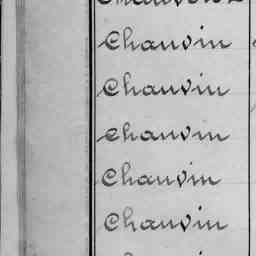 Chauvin
Chauvin
Chauvin
Chauvin
Chauvin